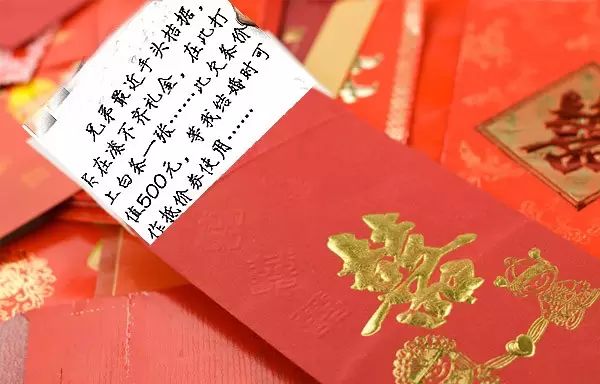 兄弟最近手头拮据,
实在凑不齐礼金,在此打
上白条一张......此欠条价
值500元,等我结婚时可
作抵价券使用......
囍
囍